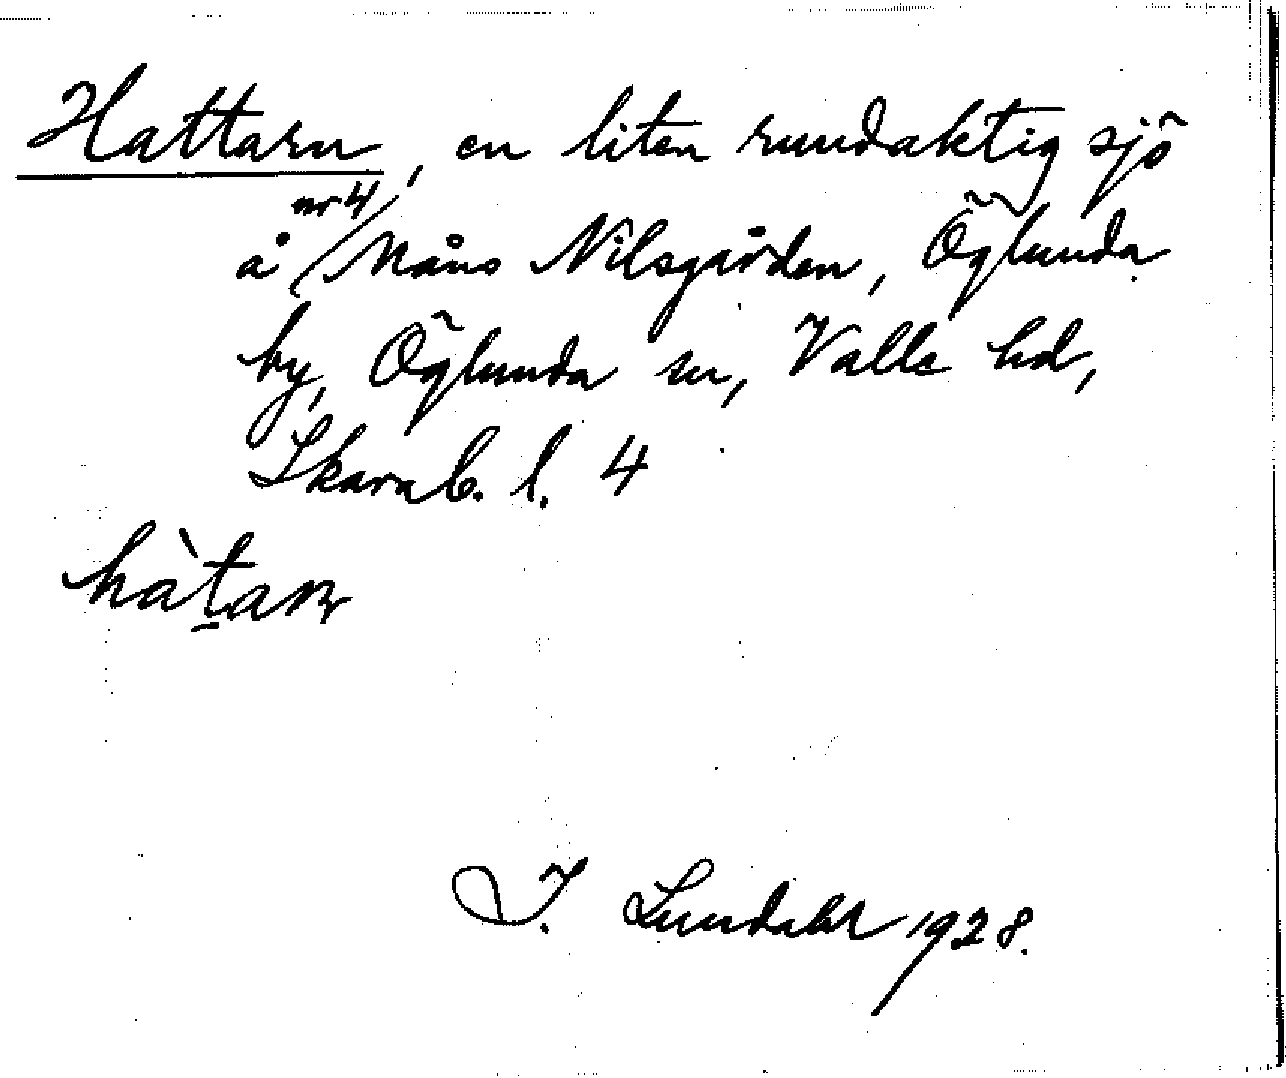 Hattarn, en liten rundaktig sjö
nr 4
å Måns Nilsgården, Öglunda
by, Öglunda sn, Valle hd,
Skarab. l. 4
hàt̠aɴ
I. Lundahl 1928.